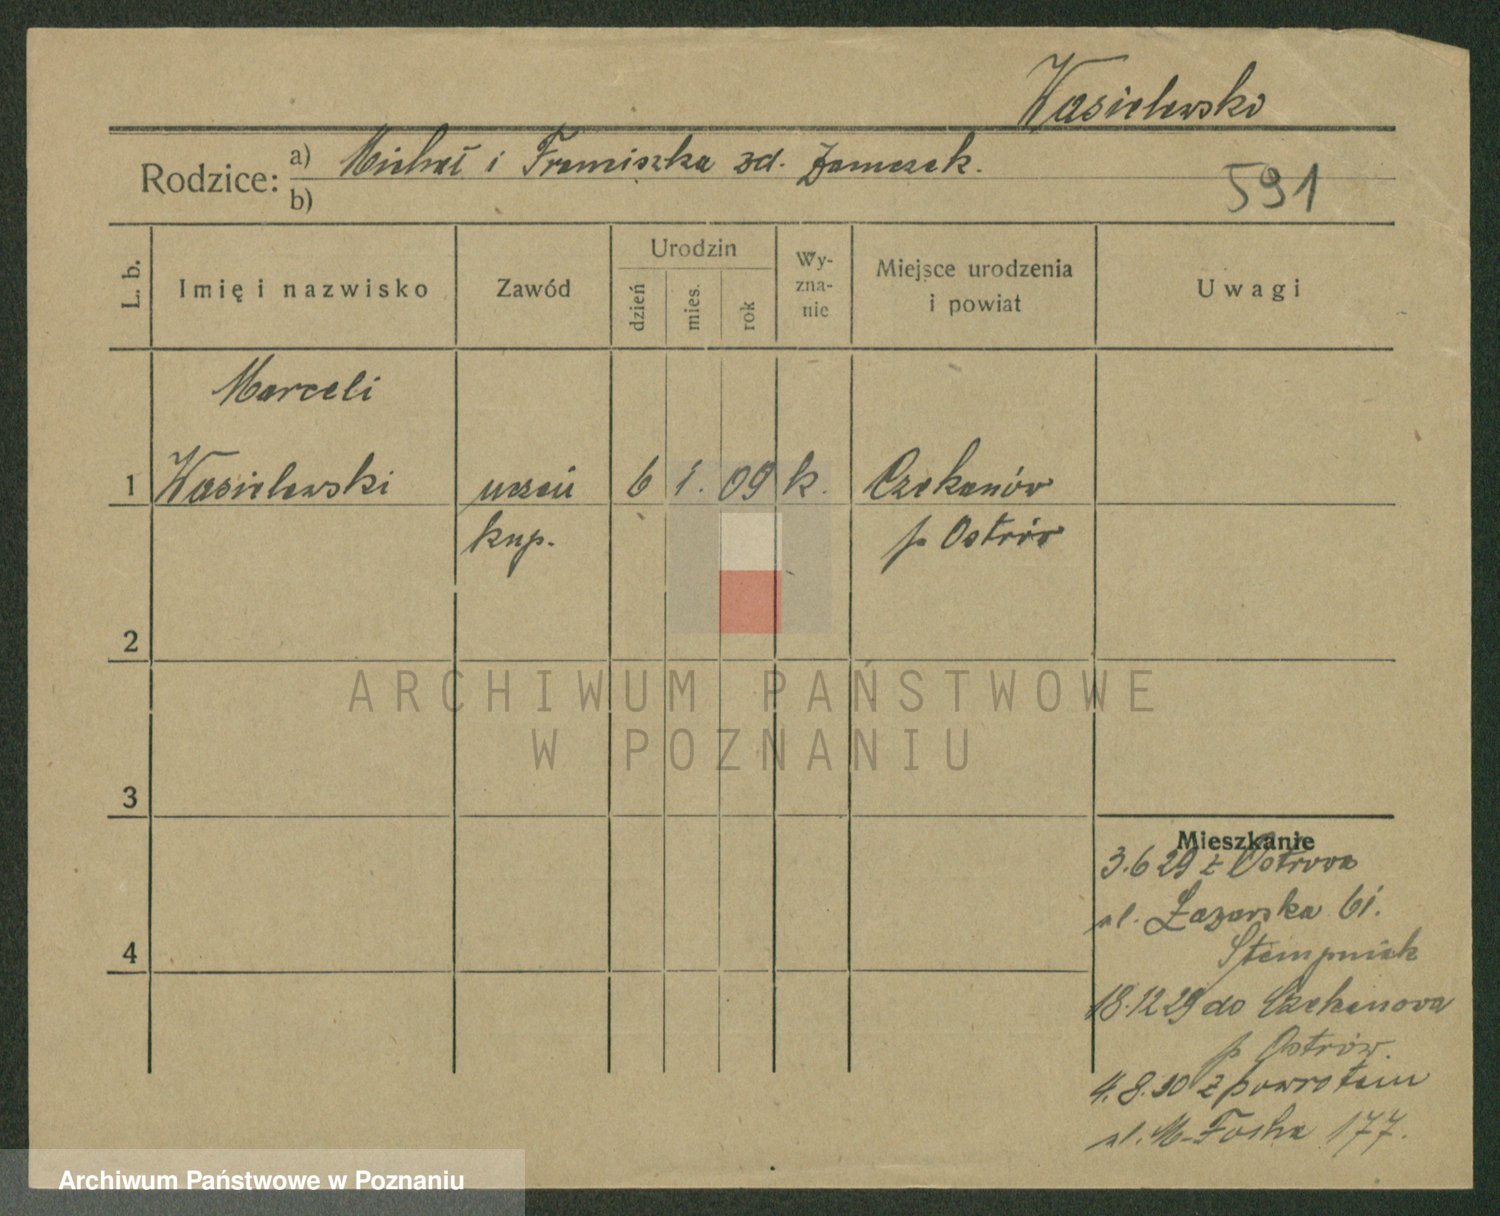 Wasielewski
Rodzice: a) Michał i Franciszka zd. Zamczek.
b)
591
L. b.
Imię i nazwisko
Zawód
Urodzin
dzień
mies.
rok
Wy-
zna-
nie
Miejsce urodzenia
i powiat
Uwagi
Marceli
1 Wasielewski uczeń 6 1. 09 k. Czekanów
kup. p. Ostrów
2
3
4
ARCHIWUM PAŃSTWOWE
W POZNANIU
Mieszkanie
3.6 29 z Ostrowa
ul. Łazarska 6i.
Stempniak
18.12 29 do Czekanowa
p. Ostrów.
4.8.30 z powrotem
ul. M. Focha 177.
Archiwum Państwowe w Poznaniu